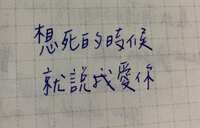 想死的時候
就說我愛你